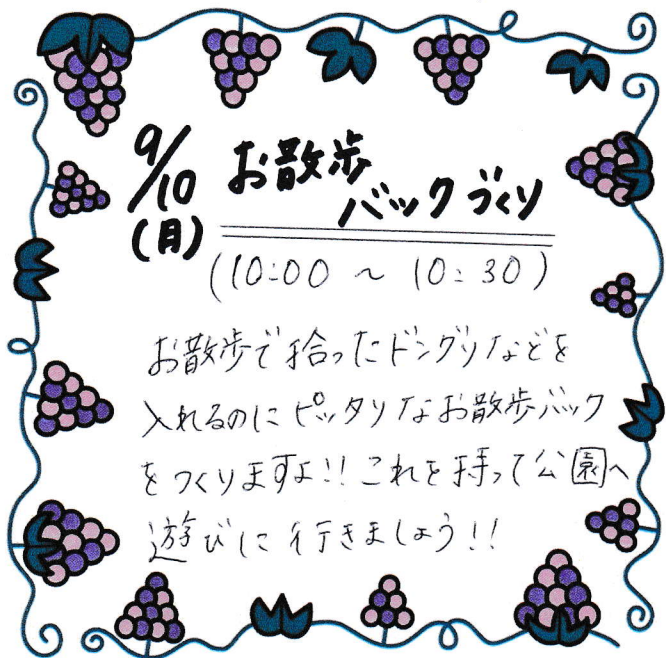 9/10(月) お散歩
バックづくり
(10:00 ~ 10:30)
お散歩で拾ったドングリなどを
入れるのにピッタリなお散歩バック
をつくりますよ!!これを持って公園へ
遊びに行きましょう!!